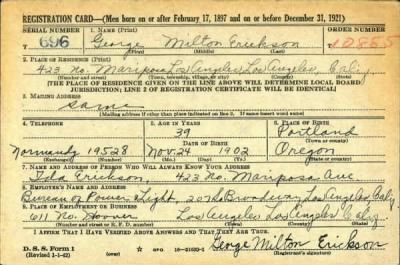 REGISTRATION CARD—(Men born on or after February 17, 1897 and on or before December 31, 1921)
SERIAL NUMBER 1. NAME (Print) ORDER NUMBER
U 696 George Milton Erickson 10855
(First) (Middle) (Last)
2. PLACE OF RESIDENCE (Print)
423 No. Mariposa Los Angeles Los Angeles, Calif
(Number and street) (Town, township, village, or city) (County) (State)
[THE PLACE OF RESIDENCE GIVEN ON THE LINE ABOVE WILL DETERMINE LOCAL BOARD
JURISDICTION; LINE 2 OF REGISTRATION CERTIFICATE WILL BE IDENTICAL]
3. MAILING ADDRESS
Same
[Mailing address if other than place indicated on line 2. If same insert word same]
4. TELEPHONE 5. AGE IN YEARS 6. PLACE OF BIRTH
39 Portland
DATE OF BIRTH (Town or county)
Normandy 19528 Nov. 24 1902 Oregon
(Exchange) (Number) (Mo.) (Day) (Yr.) (State or country)
7. NAME AND ADDRESS OF PERSON WHO WILL ALWAYS KNOW YOUR ADDRESS
Ida Erickson 423 No. Mariposa Ave
8. EMPLOYER'S NAME AND ADDRESS
Bureau of Power & Light, 207 So Broadway Los Angeles Calif
9. PLACE OF EMPLOYMENT OR BUSINESS
611 No. Hoover Los Angeles Los Angeles Calif.
(Number and street or R. F. D. number) (Town) (County) (State)
I AFFIRM THAT I HAVE VERIFIED ABOVE ANSWERS AND THAT THEY ARE TRUE.
D. S. S. Form 1 George Milton Erickson
(Revised 1-1-42) GPO 16-21630-1 (Registrant's signature)